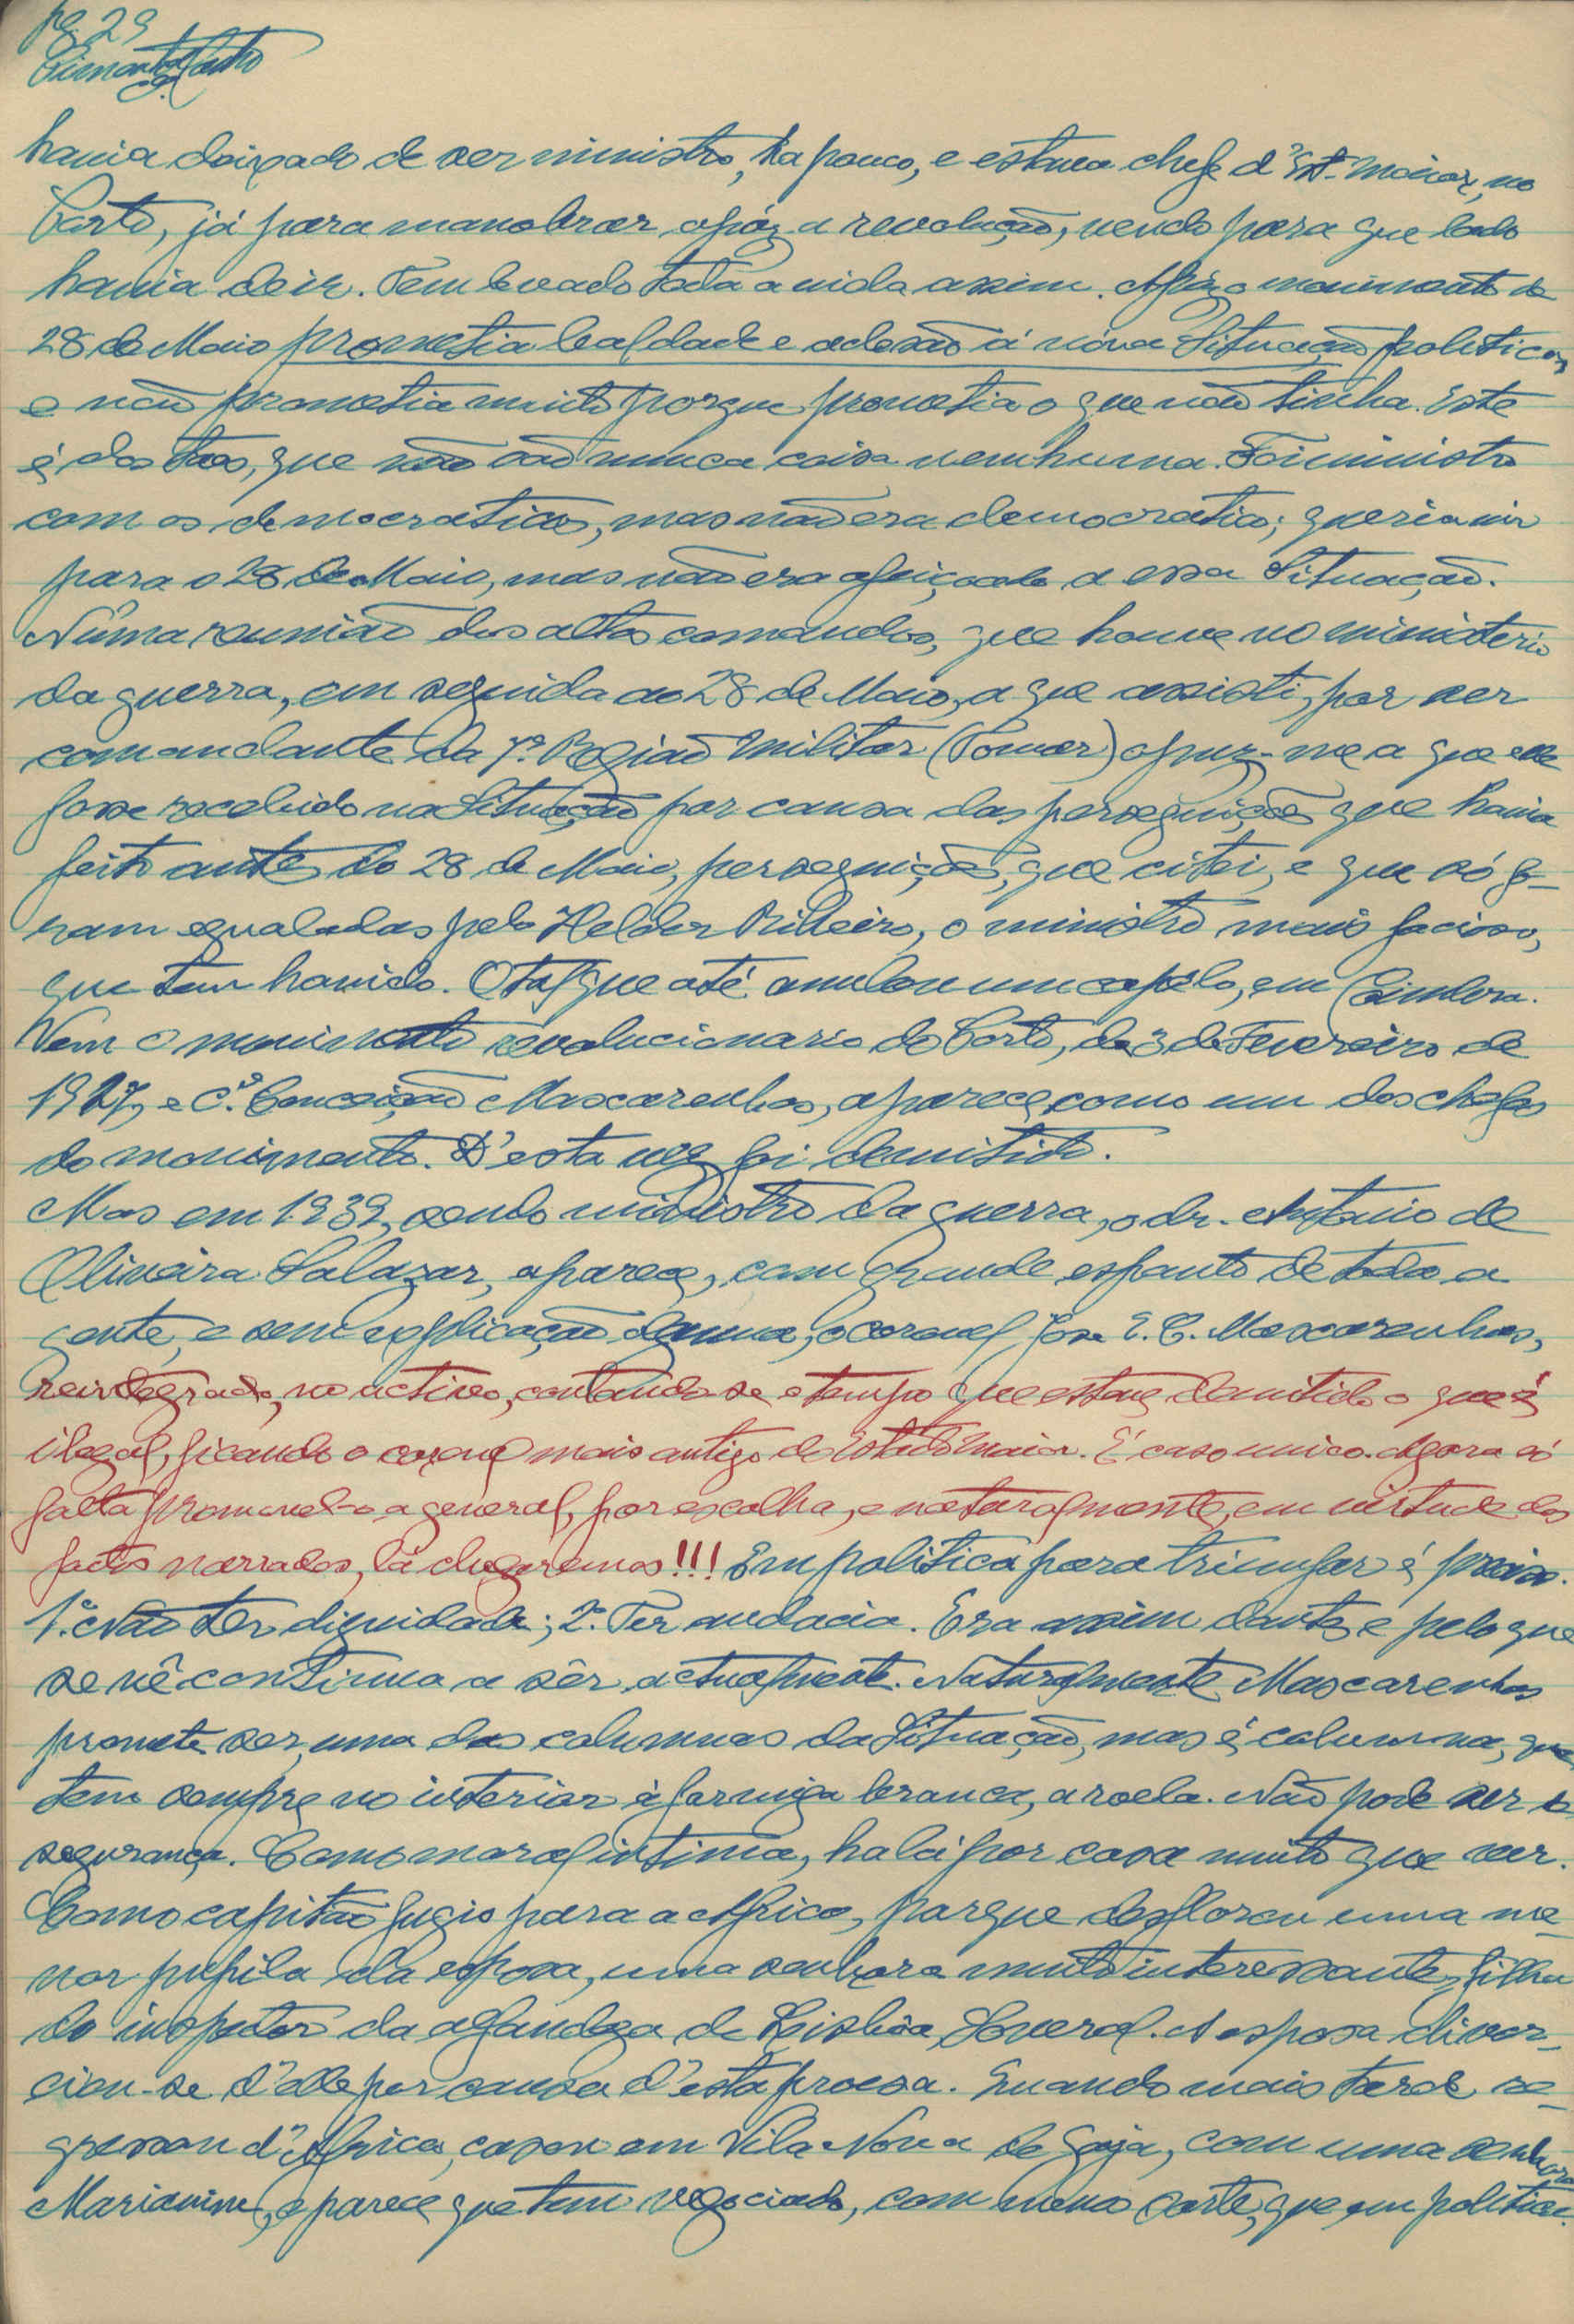 pg 29
havia deixado de ser ministro, ha pouco, e estava chefe d'Est. Maior, no
Porto, já para manobrar após a revolução, vendo para que lado
havia de ir. Tem levado toda a vida assim. Após o movimento de
28 de Maio prometia lealdade e adesão á nóva Situação politica,
e não prometia muito porque prometia o que não tinha. Este
é dos taes, que não são nunca coisa nenhuma. Foi ministro
com os democraticos, mas não era democratico; queria vir
para o 28 de Maio, mas não era afeiçoado a essa Situação.
Numa reunião dos altos comandos, que houve no ministerio
da guerra, em seguida ao 28 de Maio, a que assisti, por ser
comandante da Região Militar (Tomar) opuz-me a que ele
fosse recebido na Situação por causa das perseguições que havia
feito antes do 28 de Maio, perseguições, que citei, e que só fo-
ram egualadas pelo Helder Ribeiro, o ministro mais facioso,
que tem havido. O tal que até anulou um capelo, em Coimbra.
Vem o movimento revolucionario do Porto, de 3 de Fevereiro de
1927, e C.el Conceição Mascarenhas, aparece como um dos chefes
do movimento. D'esta vez foi demitido.
Mas em 1939, sendo ministro da guerra, o dr. Antonio de
Oliveira Salazar, aparece, com grande espanto de toda a
gente, e sem explicação alguma, o coronel José E. C. Mascarenhas,
reintegrado, no activo, contando-se o tempo que esteve demitido o que é
ilegal, ficando o coronel mais antigo do Estado Maior. É caso unico. Agora só
falta promovel-o a general, por escolha, e naturalmente, em virtude dos
factos narrados, lá chegaremos!!! Em politica para triunfar é preciso.
1.º Não ter dignidade; 2.º Ter audacia. Era assim dantes e pelo que
se vê continua a sêr, actualmente. Naturalmente Mascarenhas
promete ser, uma das columnas da Situação, mas é columna, que
tem sempre no interior a formiga branca, a roela. Não pode ser de
segurança. Como moral intima, ha lá por casa muito que ver.
Como capitão fugio para a Africa, porque desflorou uma me-
nor pupila da esposa, uma senhora muito interessante, filha
do inspector da alfandega de Lisboa, Soveral. A esposa divor-
ciou-se d'elle por causa d'esta proesa. Quando mais tarde re-
gressou d'Africa, casou em Vila Nova de Gaja, com uma senhora
e parece que tem negociado, com menos sorte, que em politica.